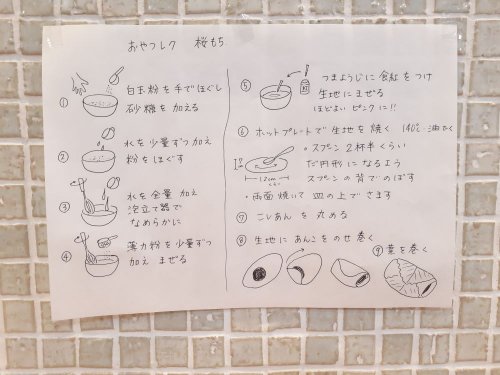 おやつレク 桜もち
① 白玉粉を手でほぐし
砂糖を加える
② 水を少量ずつ加え
粉をほぐす
③ 水を全量加え
泡立て器で
なめらかに
④ 薄力粉を少量ずつ
加え まぜる
⑤ つまようじに食紅をつけ
生地にまぜる
ほどよいピンクに!!
⑥ ホットプレートで生地を焼く 140℃ 油なく
・スプーン2杯半くらい
だ円形になるよう
スプーンの背でのばす
12cm
くらい
・両面焼いて皿の上でさます
⑦ こしあんを丸める
⑧ 生地にあんこをのせ巻く
⑨ 葉を巻く